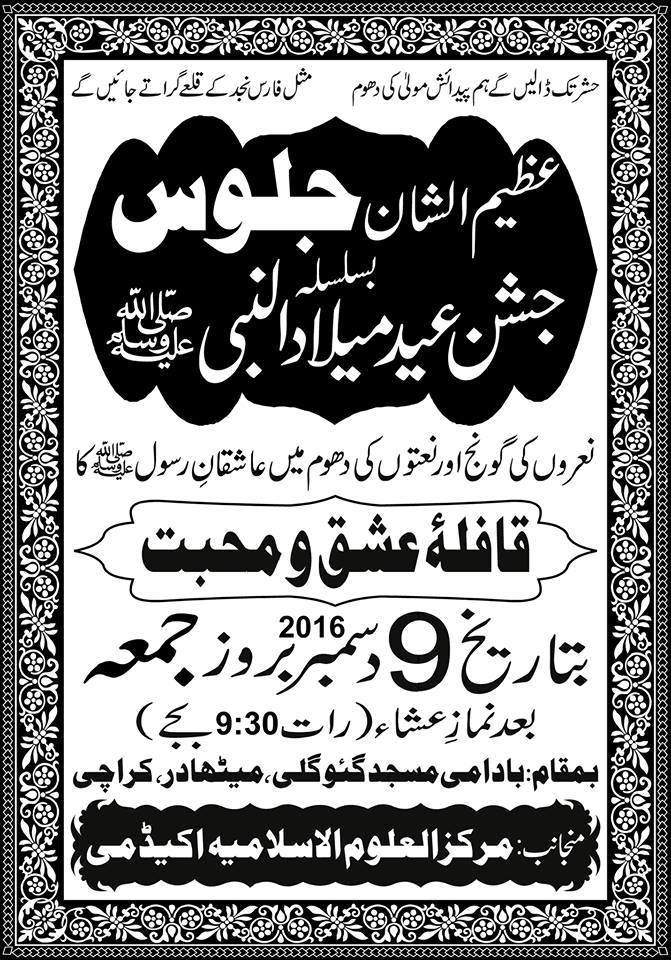 حشر تک ڈالیں گے ہم پیدائش مولیٰ کی دھوم مثل فارس نجد کے قلعے گراتے جائیں گے
عظیم الشان جلوس
بسلسلہ
جشن عید میلاد النبی صلی اللہ علیہ وسلم
نعروں کی گونج اور نعتوں کی دھوم میں عاشقانِ رسول صلی اللہ علیہ وسلم کا
قافلۂ عشق و محبت
بتاریخ 9 دسمبر 2016 بروز جمعہ
بعد نمازِ عشاء (رات 9:30 بجے)
بمقام: بادامی مسجد گئو گلی، میٹھادر، کراچی
منجانب: مرکز العلوم الاسلامیہ اکیڈمی